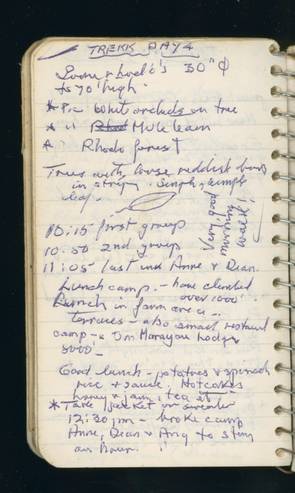 TREKK DAY 4
Some rhodo's 30" ϕ
to 70' high.
* Pic white orchids on tree
* " Mule team
* " Rhodo forest
Trees with loose reddish bark
in strips. Single, simple
leaf.
Very good
morning
walk!
10:15 first group
10:50 2nd group
11:05 last incl Anne & Dean.
Lunch camp. - have climbed
over 1000'
Lunch in farm area -
terraces - also small restaurant
camp - Lodge
8000' -
Good lunch - potatoes & spinach
rice & sauce, Hotcakes
honey & jam, tea et
* Take jacket or sweater
12:30 pm - broke camp
Anne, Dean & Ang to stay
an hour.